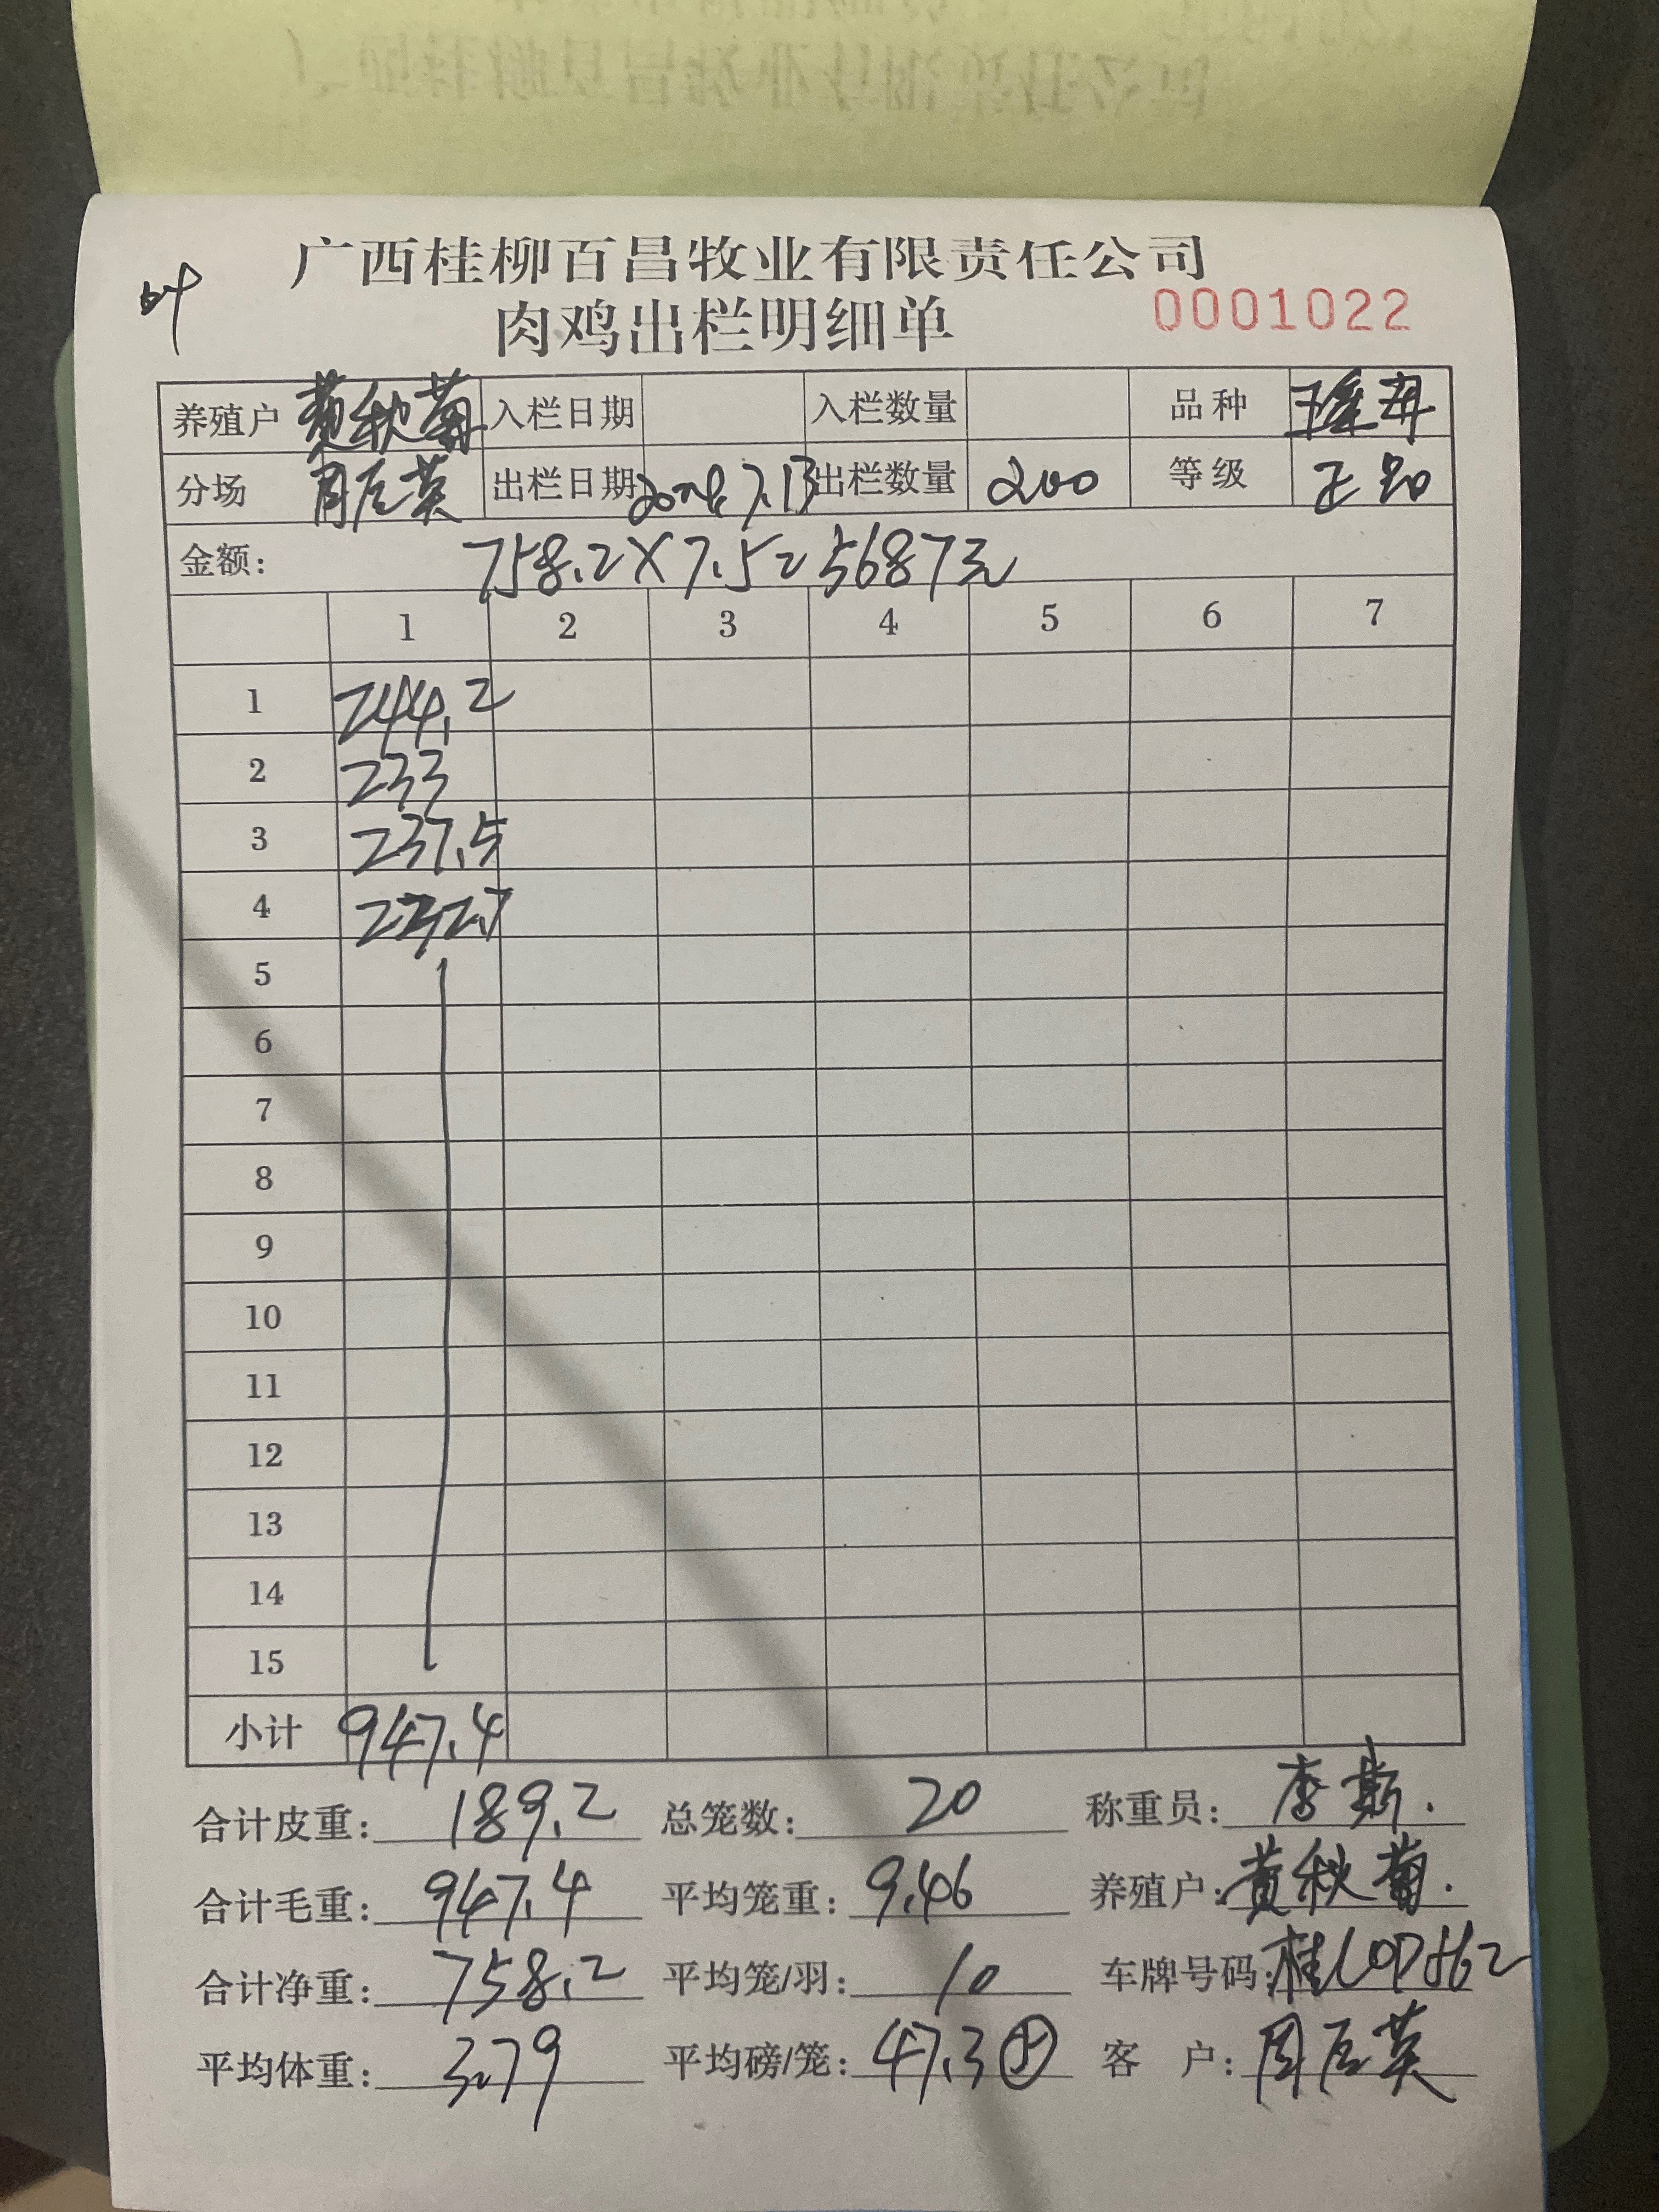 广西桂柳百昌牧业有限责任公司
肉鸡出栏明细单 0001022
养殖户 黄秋菊 入栏日期 入栏数量 品种
分场 出栏日期 7.13 出栏数量 200 等级 正品
金额: 758.2×7.5=5687元
1 2 3 4 5 6 7
1 244.2
2 233
3 237.5
4 232.7
5
6
7
8
9
10
11
12
13
14
15
小计 947.4
合计皮重: 189.2 总笼数: 20 称重员: 李斯.
合计毛重: 947.4 平均笼重: 9.46 养殖户: 黄秋菊.
合计净重: 758.2 平均笼/羽: 10 车牌号码:
平均体重: 3.79 平均磅/笼: 47.3 客 户: